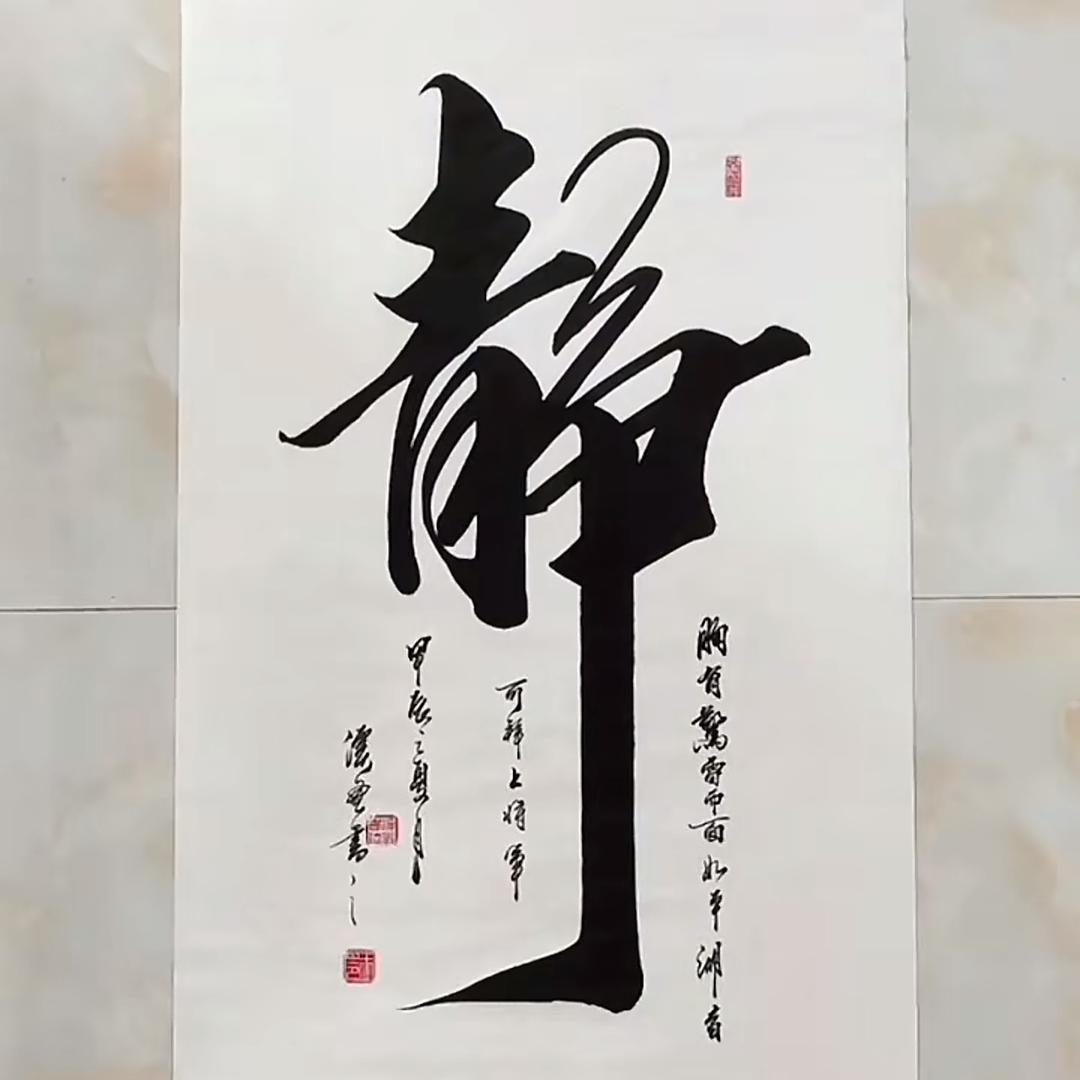 靜
胸有驚雷而面如平湖者
可拜上將軍
甲辰之夏月
書之